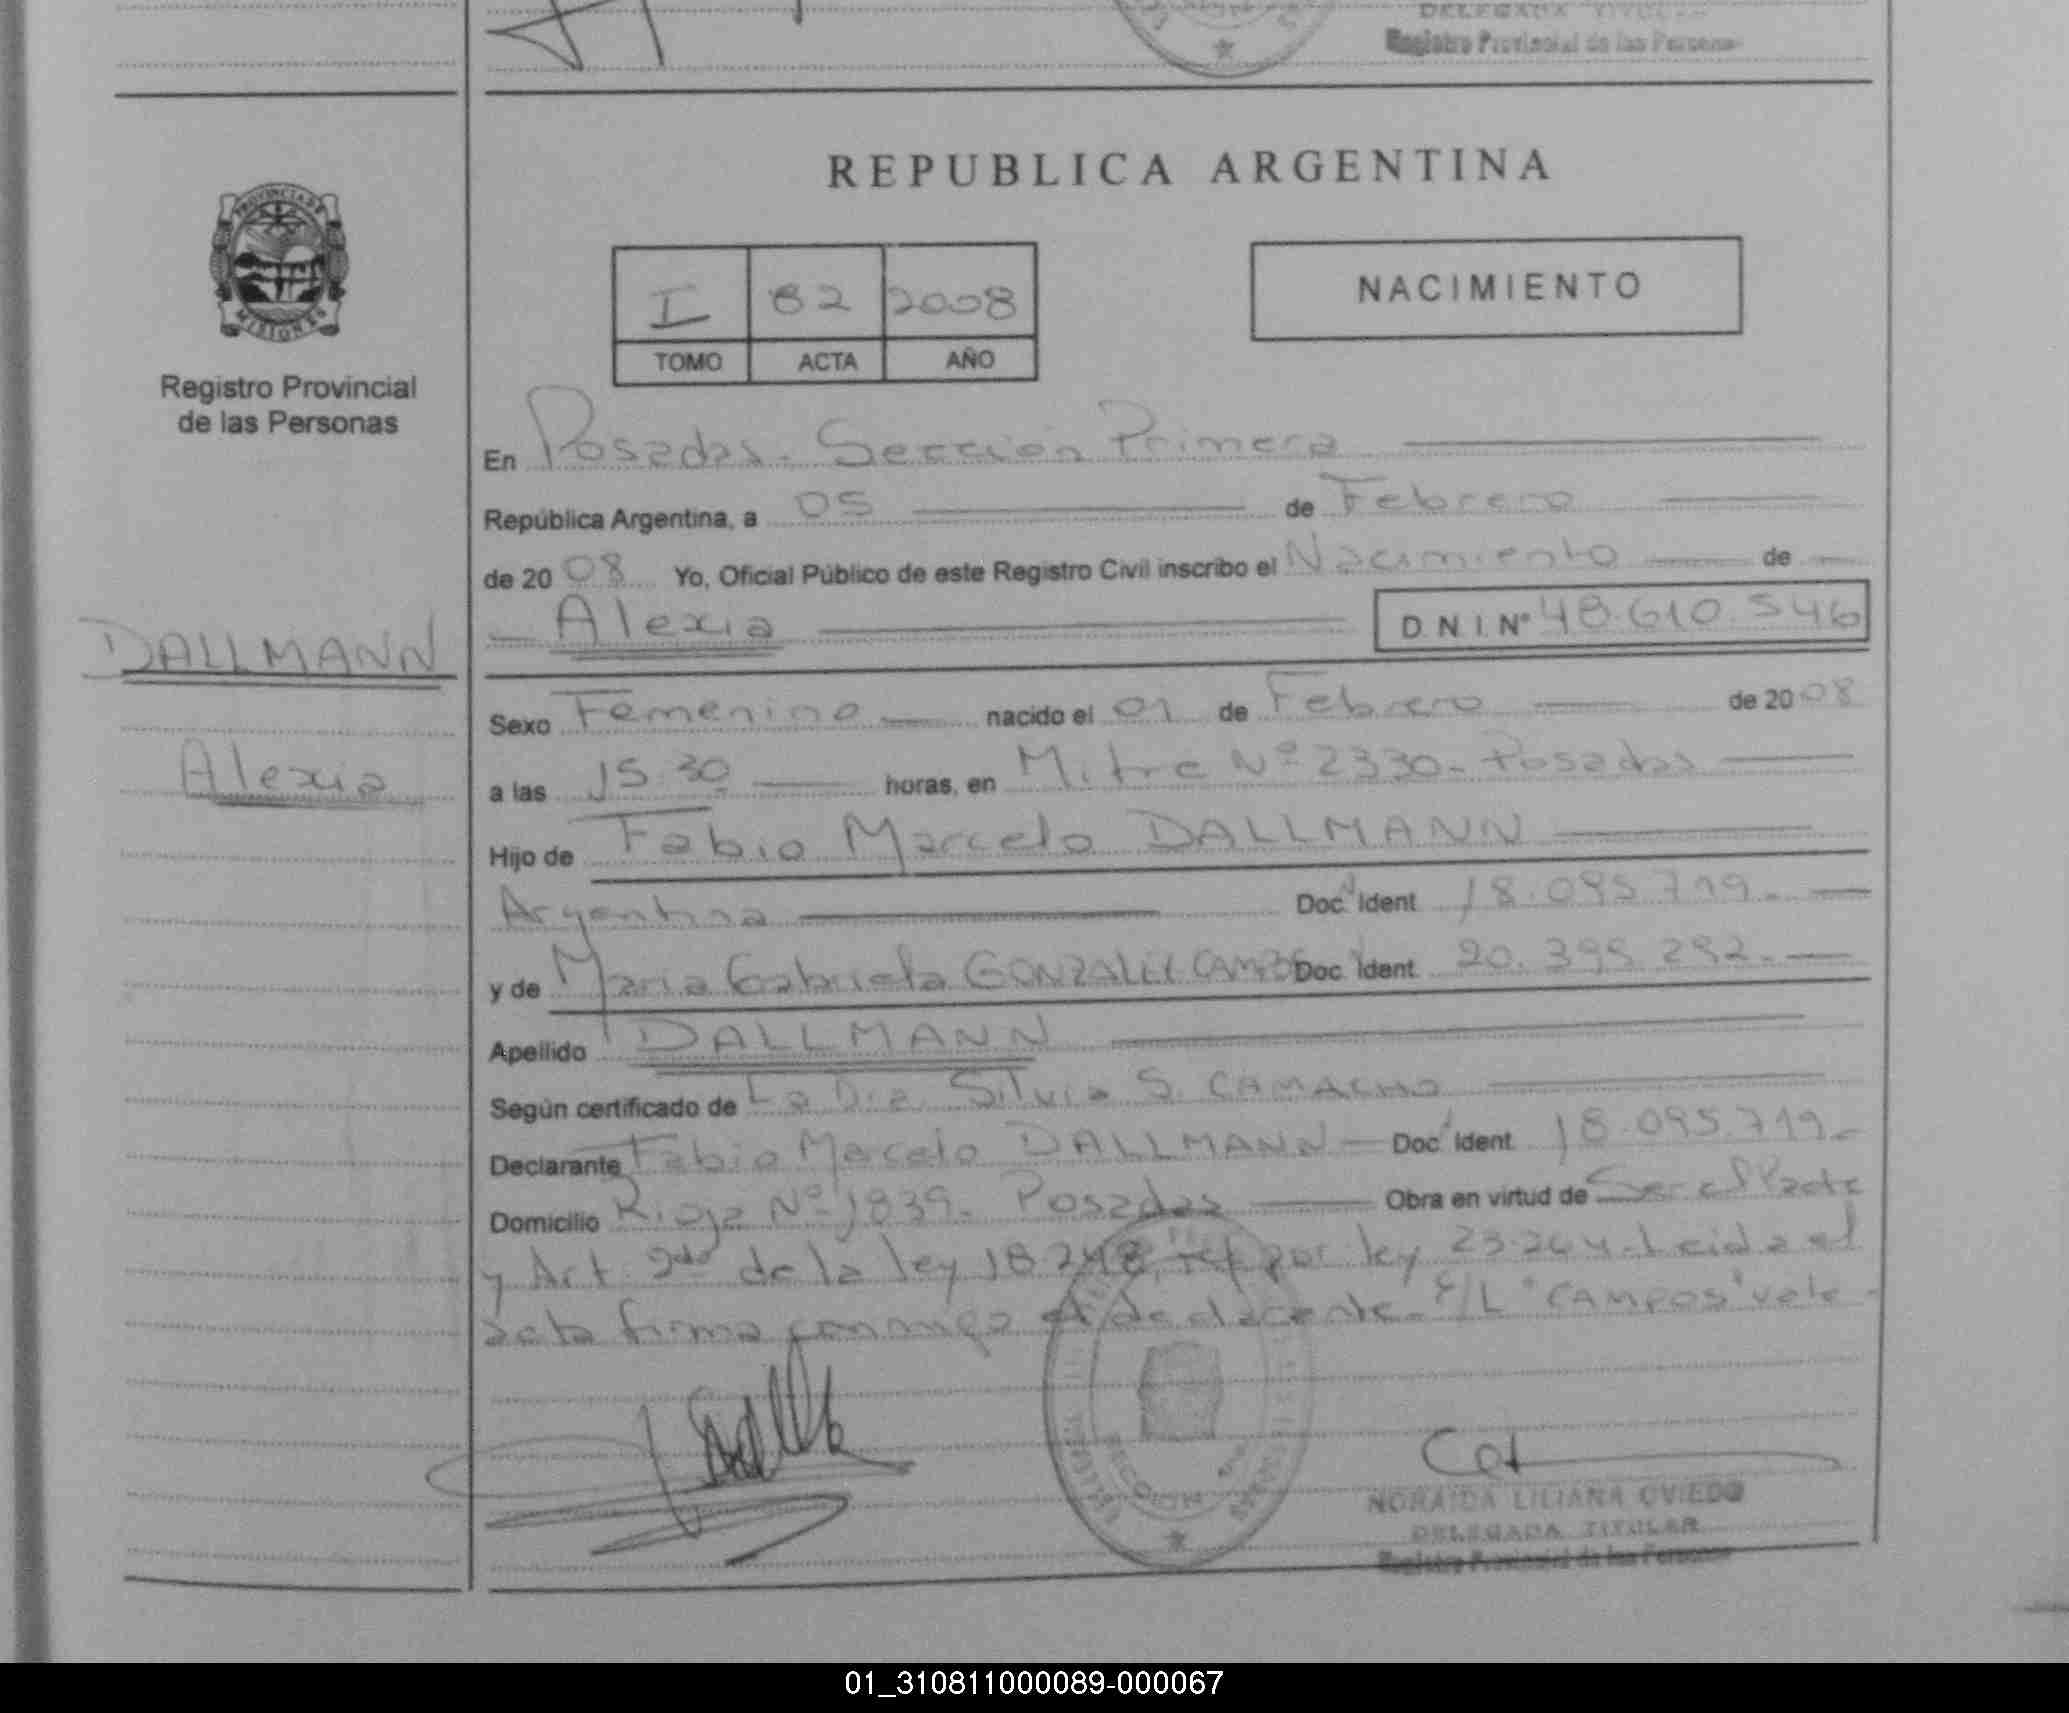 DELEGADA TITULAR
Registro Provincial de las Personas
PROVINCIA DE
MISIONES
Registro Provincial
de las Personas
DALLMANN
Alexia
REPUBLICA ARGENTINA
I 82 2008
TOMO ACTA AÑO
NACIMIENTO
En Posadas - Sección Primera
República Argentina, a 05 de Febrero
de 2008 Yo, Oficial Público de este Registro Civil inscribo el Nacimiento de
Alexia D.N.I.Nº 48.610.546
Sexo Femenino nacido el 01 de Febrero de 2008
a las 15.30 horas, en Mitre Nº 2330 - Posadas
Hijo de Fabio Marcelo DALLMANN
Argentina Doc. Ident 18.095.719.-
y de Maria Gabriela GONZALEZ CAMPOS Doc. Ident. 20.395.292.-
Apellido DALLMANN
Según certificado de La Dra. Silvia S. CAMACHO
Declarante Fabio Marcelo DALLMANN Doc. Ident. 18.095.719.-
Domicilio Rioja Nº 1839 - Posadas Obra en virtud de Ser el Padre
y Art. 2do de la ley 18.248, ref por ley 23.264. Leida el
acta firma conmigo el declarante. E/L "CAMPOS" vale -
NORAIDA LILIANA OVIEDO
DELEGADA TITULAR
Registro Provincial de las Personas
01_310811000089-000067